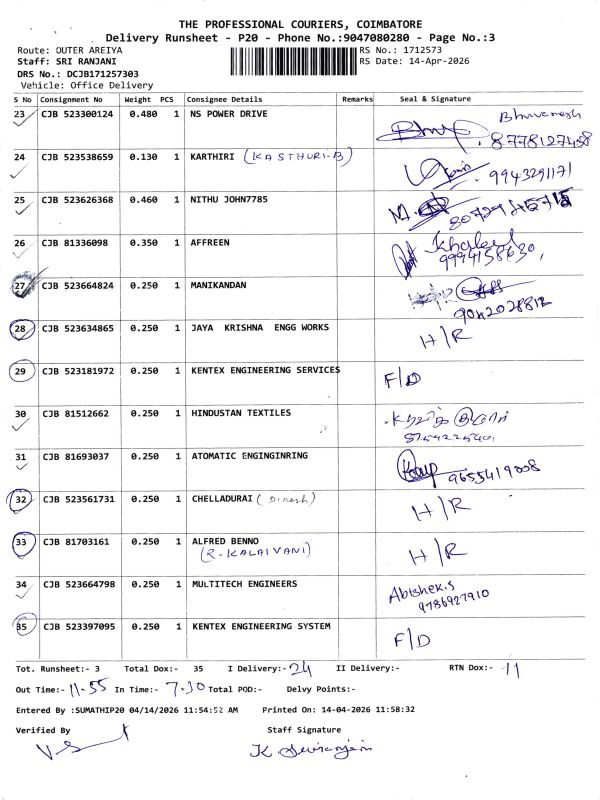 THE PROFESSIONAL COURIERS, COIMBATORE
Delivery Runsheet - P20 - Phone No.:9047080280 - Page No.:3
Route: OUTER AREIYA RS No.: 1712573
Staff: SRI RANJANI RS Date: 14-Apr-2026
DRS No.: DCJB171257303
Vehicle: Office Delivery
S No Consignment No Weight PCS Consignee Details Remarks Seal & Signature
23 CJB 523300124 0.480 1 NS POWER DRIVE Bhuvanesh
8778127458
24 CJB 523538659 0.130 1 KARTHIRI (KASTHURI-B) 9943291171
25 CJB 523626368 0.460 1 NITHU JOHN7785
26 CJB 81336098 0.350 1 AFFREEN Khaleel
9994158630,
27 CJB 523664824 0.250 1 MANIKANDAN
9042028812
28 CJB 523634865 0.250 1 JAYA KRISHNA ENGG WORKS H/R
29 CJB 523181972 0.250 1 KENTEX ENGINEERING SERVICES F/D
30 CJB 81512662 0.250 1 HINDUSTAN TEXTILES
31 CJB 81693037 0.250 1 ATOMATIC ENGINGINRING 9655419008
32 CJB 523561731 0.250 1 CHELLADURAI (Dinesh) H/R
33 CJB 81703161 0.250 1 ALFRED BENNO H/R
(R-KALAIVANI)
34 CJB 523664798 0.250 1 MULTITECH ENGINEERS Abishek.S
9786927910
35 CJB 523397095 0.250 1 KENTEX ENGINEERING SYSTEM F/D
Tot. Runsheet:- 3 Total Dox:- 35 I Delivery:- 24 II Delivery:- RTN Dox:- 11
Out Time:- 11-55 In Time:- 7.30 Total POD:- Delvy Points:-
Entered By :SUMATHIP20 04/14/2026 11:54:52 AM Printed On: 14-04-2026 11:58:32
Verified By Staff Signature